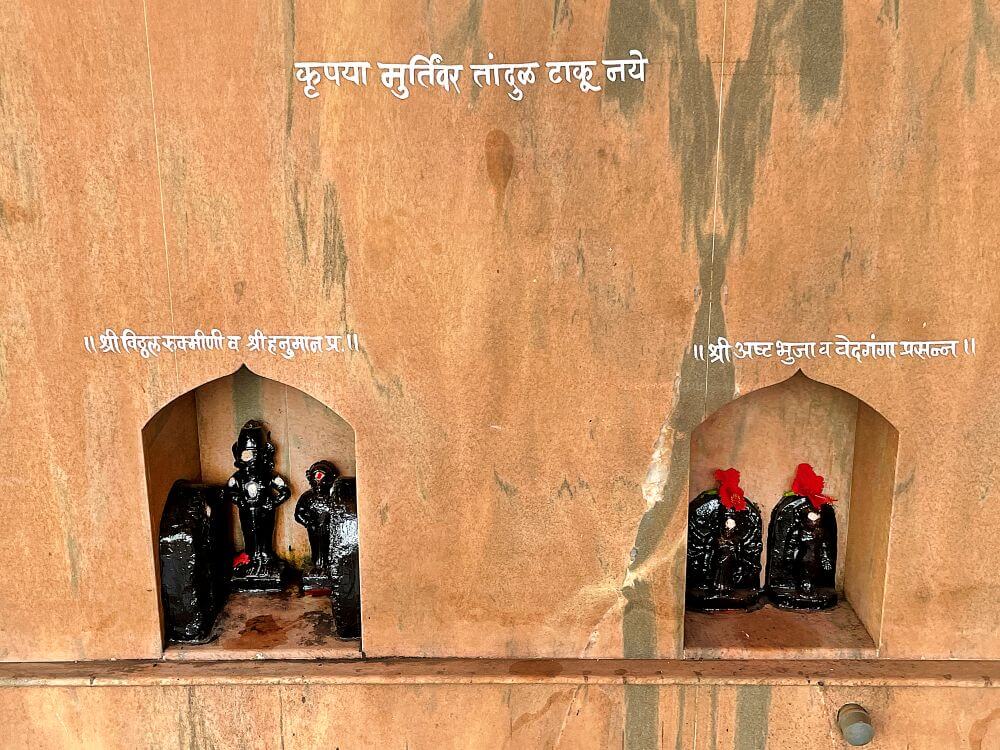 कृपया मुर्तिंवर तांदुळ टाकू नये
॥ श्री विठ्ठल रुक्मीणी व श्री हनुमान प्र. ॥
॥ श्री अष्ट भुजा व वेदगंगा प्रसन्न ॥